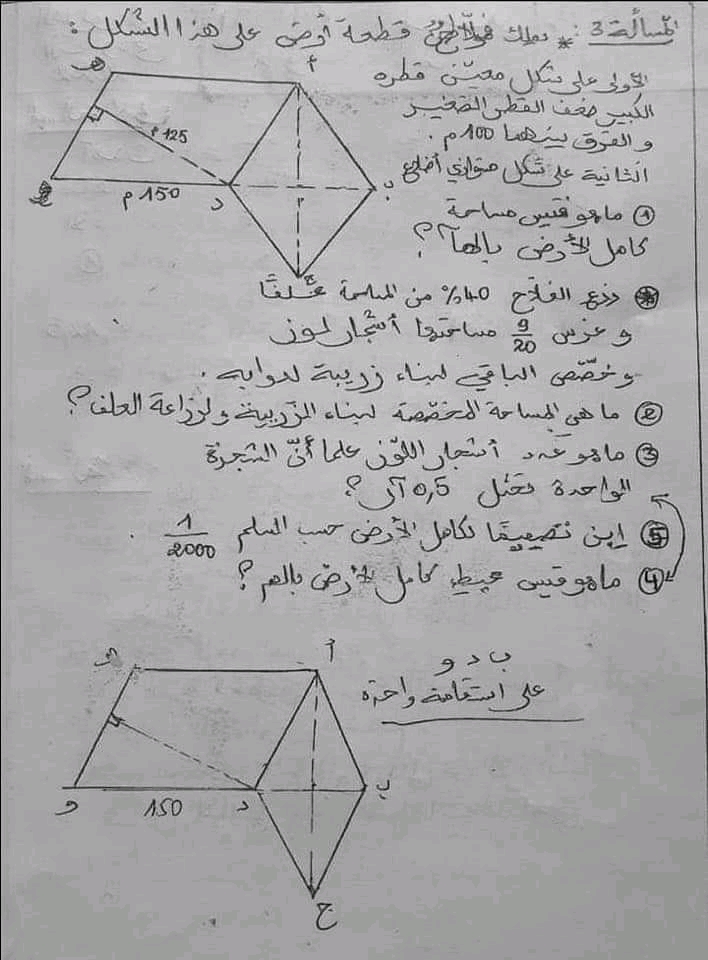 المسألة 3: * يملك فلاح قطعة أرض على هذا الشكل :
الأولى على شكل معيّن قطره
الكبير ضعف القطر الصغير
و الفرق بينهما 100 م .
الثانية على شكل متوازي أضلاع
① ما هو قيس مساحة
كامل الأرض بالهآ ؟
أ
ب
ج
د
125 م
150 م
* زرع الفلاح 40% من المساحة علفًا
و غرس 9/20 مساحتها أشجار لوز
و خصّص الباقي لبناء زريبة لدوابه .
② ما هي المساحة المخصّصة لبناء الزريبة و لزراعة العلف ؟
③ ما هو عدد أشجار اللّوز علما أنّ الشجرة
الواحدة تحتل 0,5 آر ؟
⑤ ابن تصميمًا لكامل الأرض حسب السلم 1/2000 .
④ ما هو قيس محيط كامل الأرض بالهم ؟
ب د و
على استقامة واحدة
أ
ه
و
150
د
ب
ج